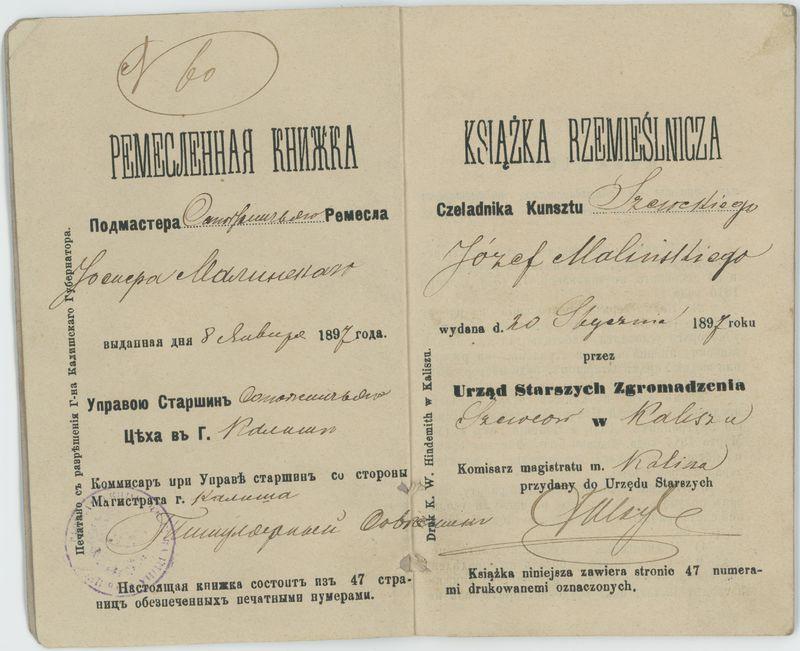 N 60
РЕМЕСЛЕННАЯ КНИЖКА
Подмастера Сапожничьяго Ремесла
Іосифа Малинскаго
выданная дня 8 Января 1897 года.
Управою Старшинъ Сапожничьяго
Цѣха въ Г. Калишѣ
Коммисаръ при Управѣ старшинъ со стороны
Магистрата г. Калиша
Титулярный Совѣтникъ
Настоящая книжка состоитъ изъ 47 стра-
ницъ обезпеченныхъ печатными нумерами.
Печатано съ разрѣшенія Г-на Калишскаго Губернатора.
KSIĄŻKA RZEMIEŚLNICZA
Czeladnika Kunsztu Szewckiego
Józef Malińskiego
wydana d. 20 Stycznia 1897 roku
przez
Urząd Starszych Zgromadzenia
Szewców w Kaliszu
Komisarz magistratu m. Kalisza
przydany do Urzędu Starszych
Książka niniejsza zawiera stronic 47 numera-
mi drukowanemi oznaczonych.
Druk K. W. Hindemith w Kaliszu.